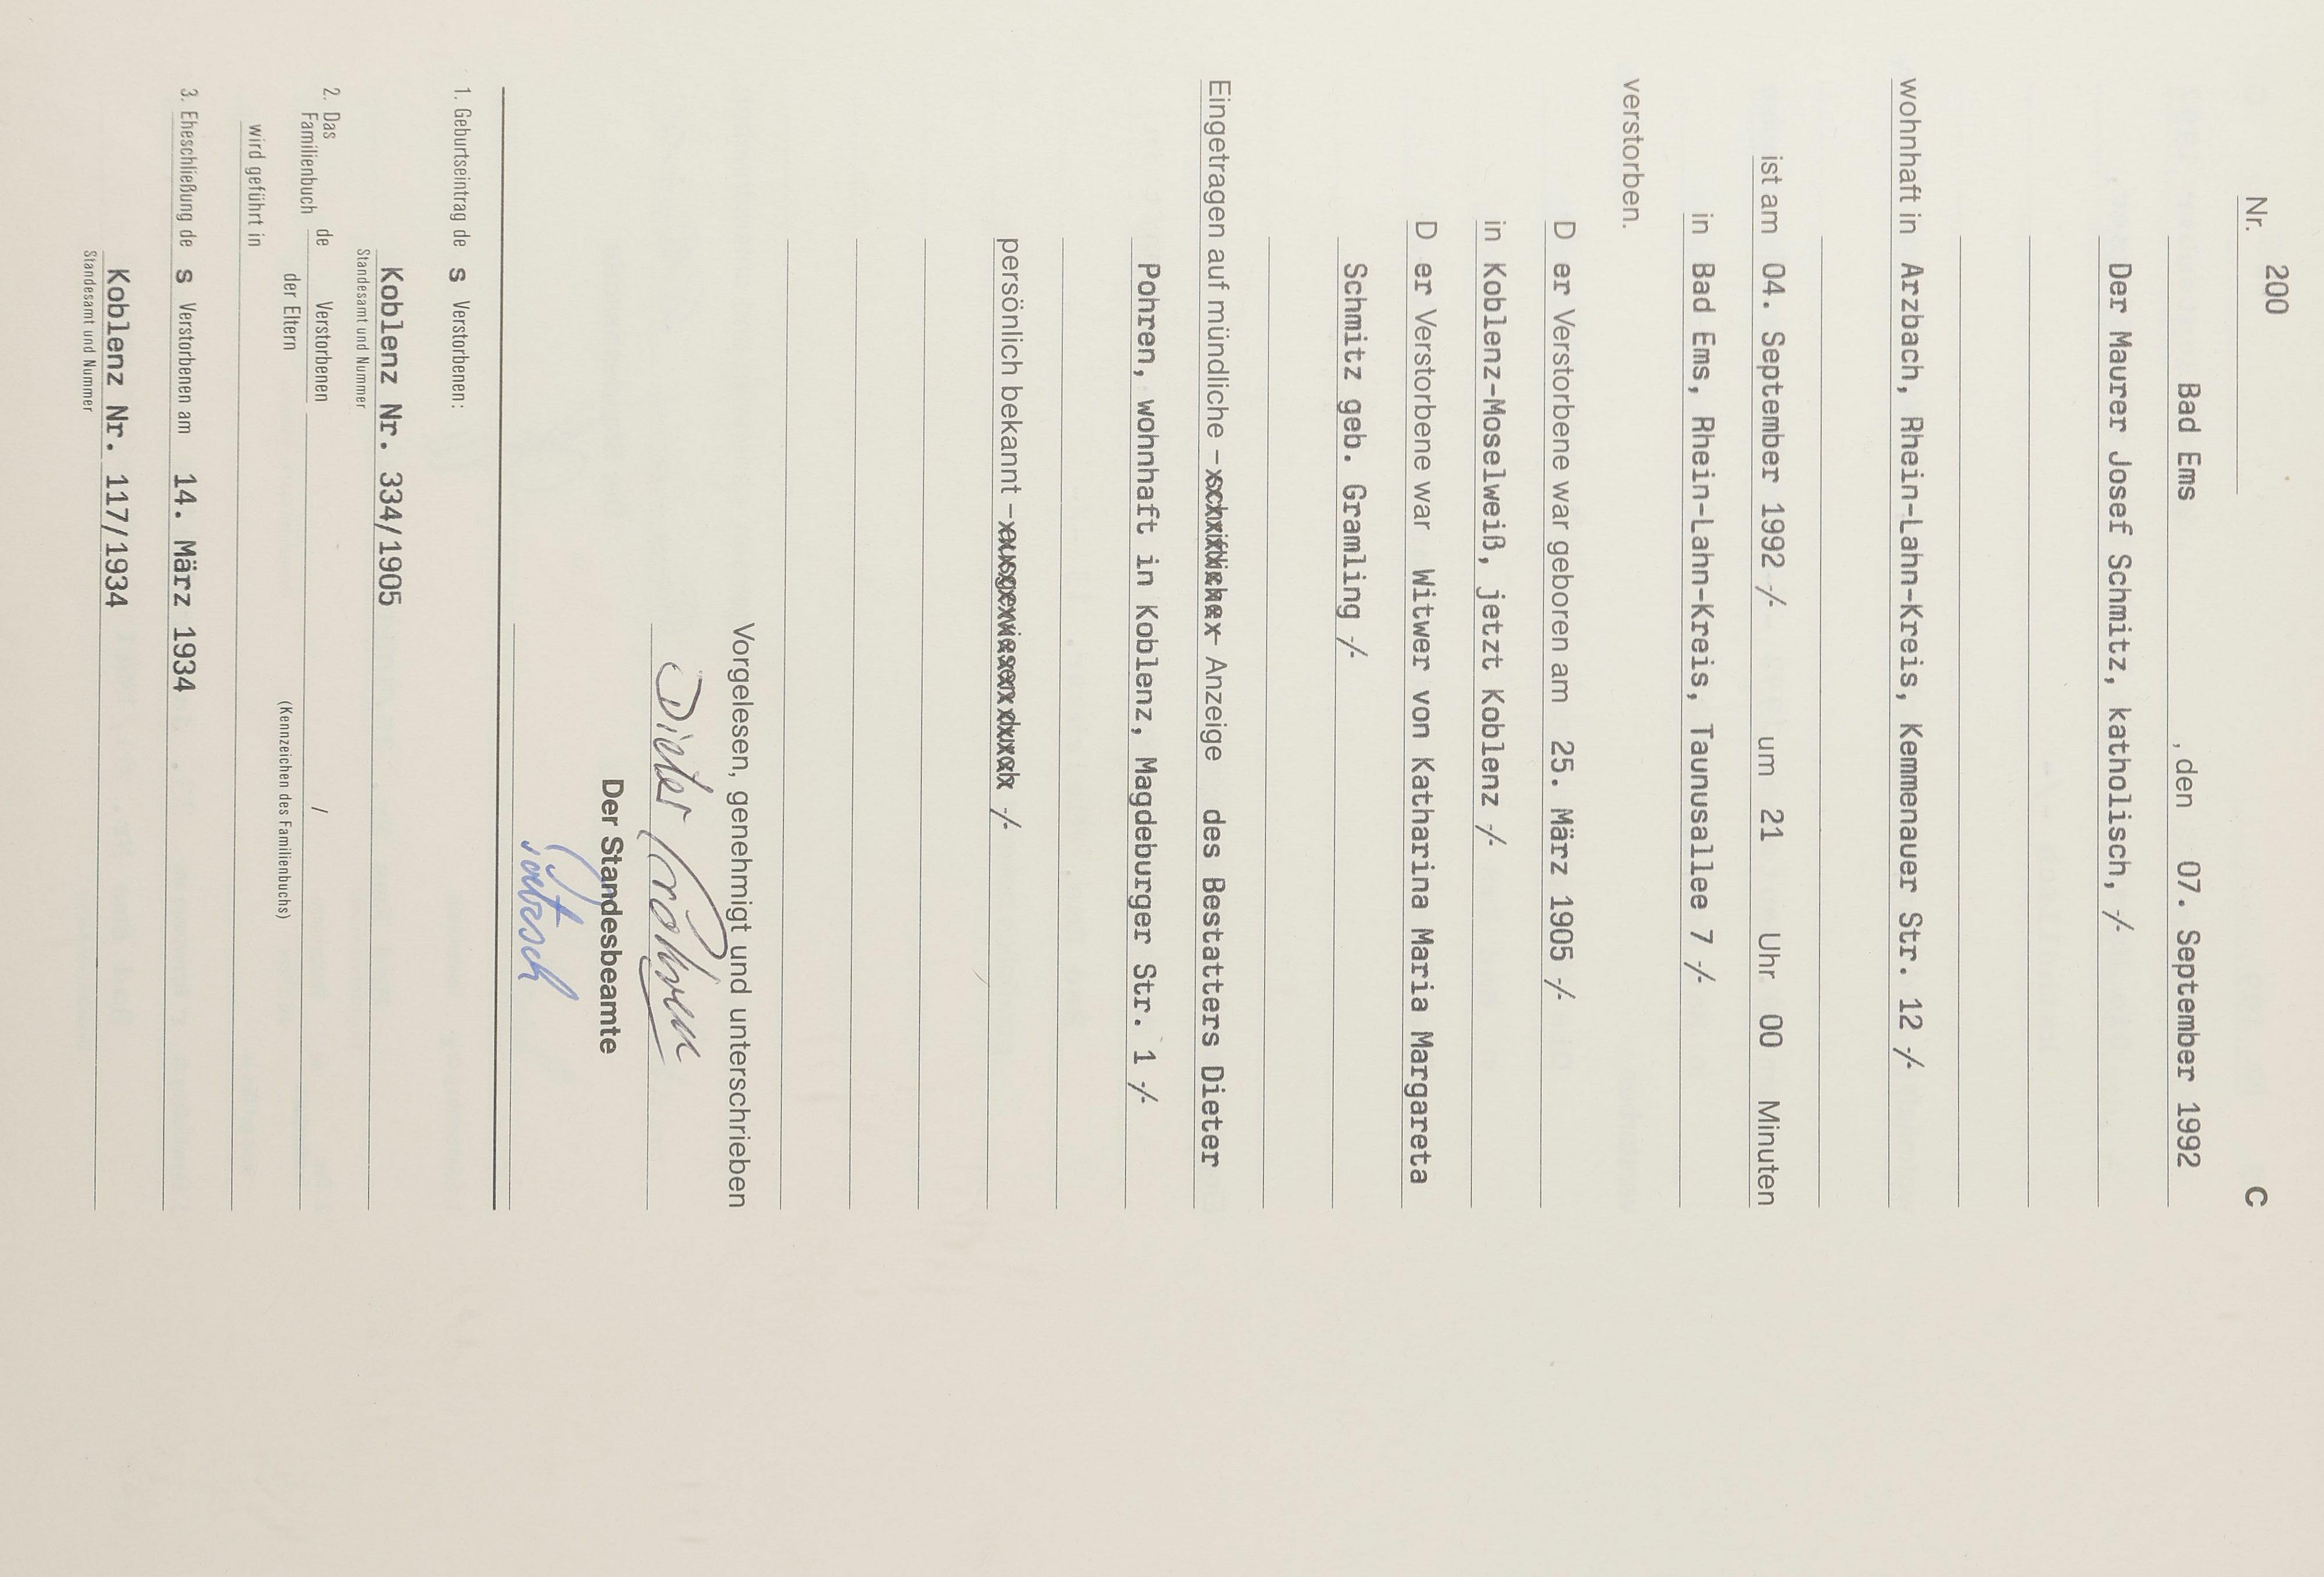 C
Nr. 200
Bad Ems, den 07. September 1992
Der Maurer Josef Schmitz, katholisch, -/-
wohnhaft in Arzbach, Rhein-Lahn-Kreis, Kemmenauer Str. 12 -/-
ist am 04. September 1992 -/- um 21 Uhr 00 Minuten
in Bad Ems, Rhein-Lahn-Kreis, Taunusallee 7 -/-
verstorben.
D er Verstorbene war geboren am 25. März 1905 -/-
in Koblenz-Moselweiß, jetzt Koblenz -/-
D er Verstorbene war Witwer von Katharina Maria Margareta
Schmitz geb. Gramling -/-
Eingetragen auf mündliche - schriftliche - Anzeige des Bestatters Dieter
Pohren, wohnhaft in Koblenz, Magdeburger Str. 1 -/-
persönlich bekannt - ausgewiesen durch -/-
Vorgelesen, genehmigt und unterschrieben
Dieter Pohren
Der Standesbeamte
1. Geburtseintrag de s Verstorbenen:
Koblenz Nr. 334/1905
Standesamt und Nummer
2. Das Familienbuch de Verstorbenen /
der Eltern (Kennzeichen des Familienbuchs)
wird geführt in
3. Eheschließung de s Verstorbenen am 14. März 1934
Koblenz Nr. 117/1934
Standesamt und Nummer